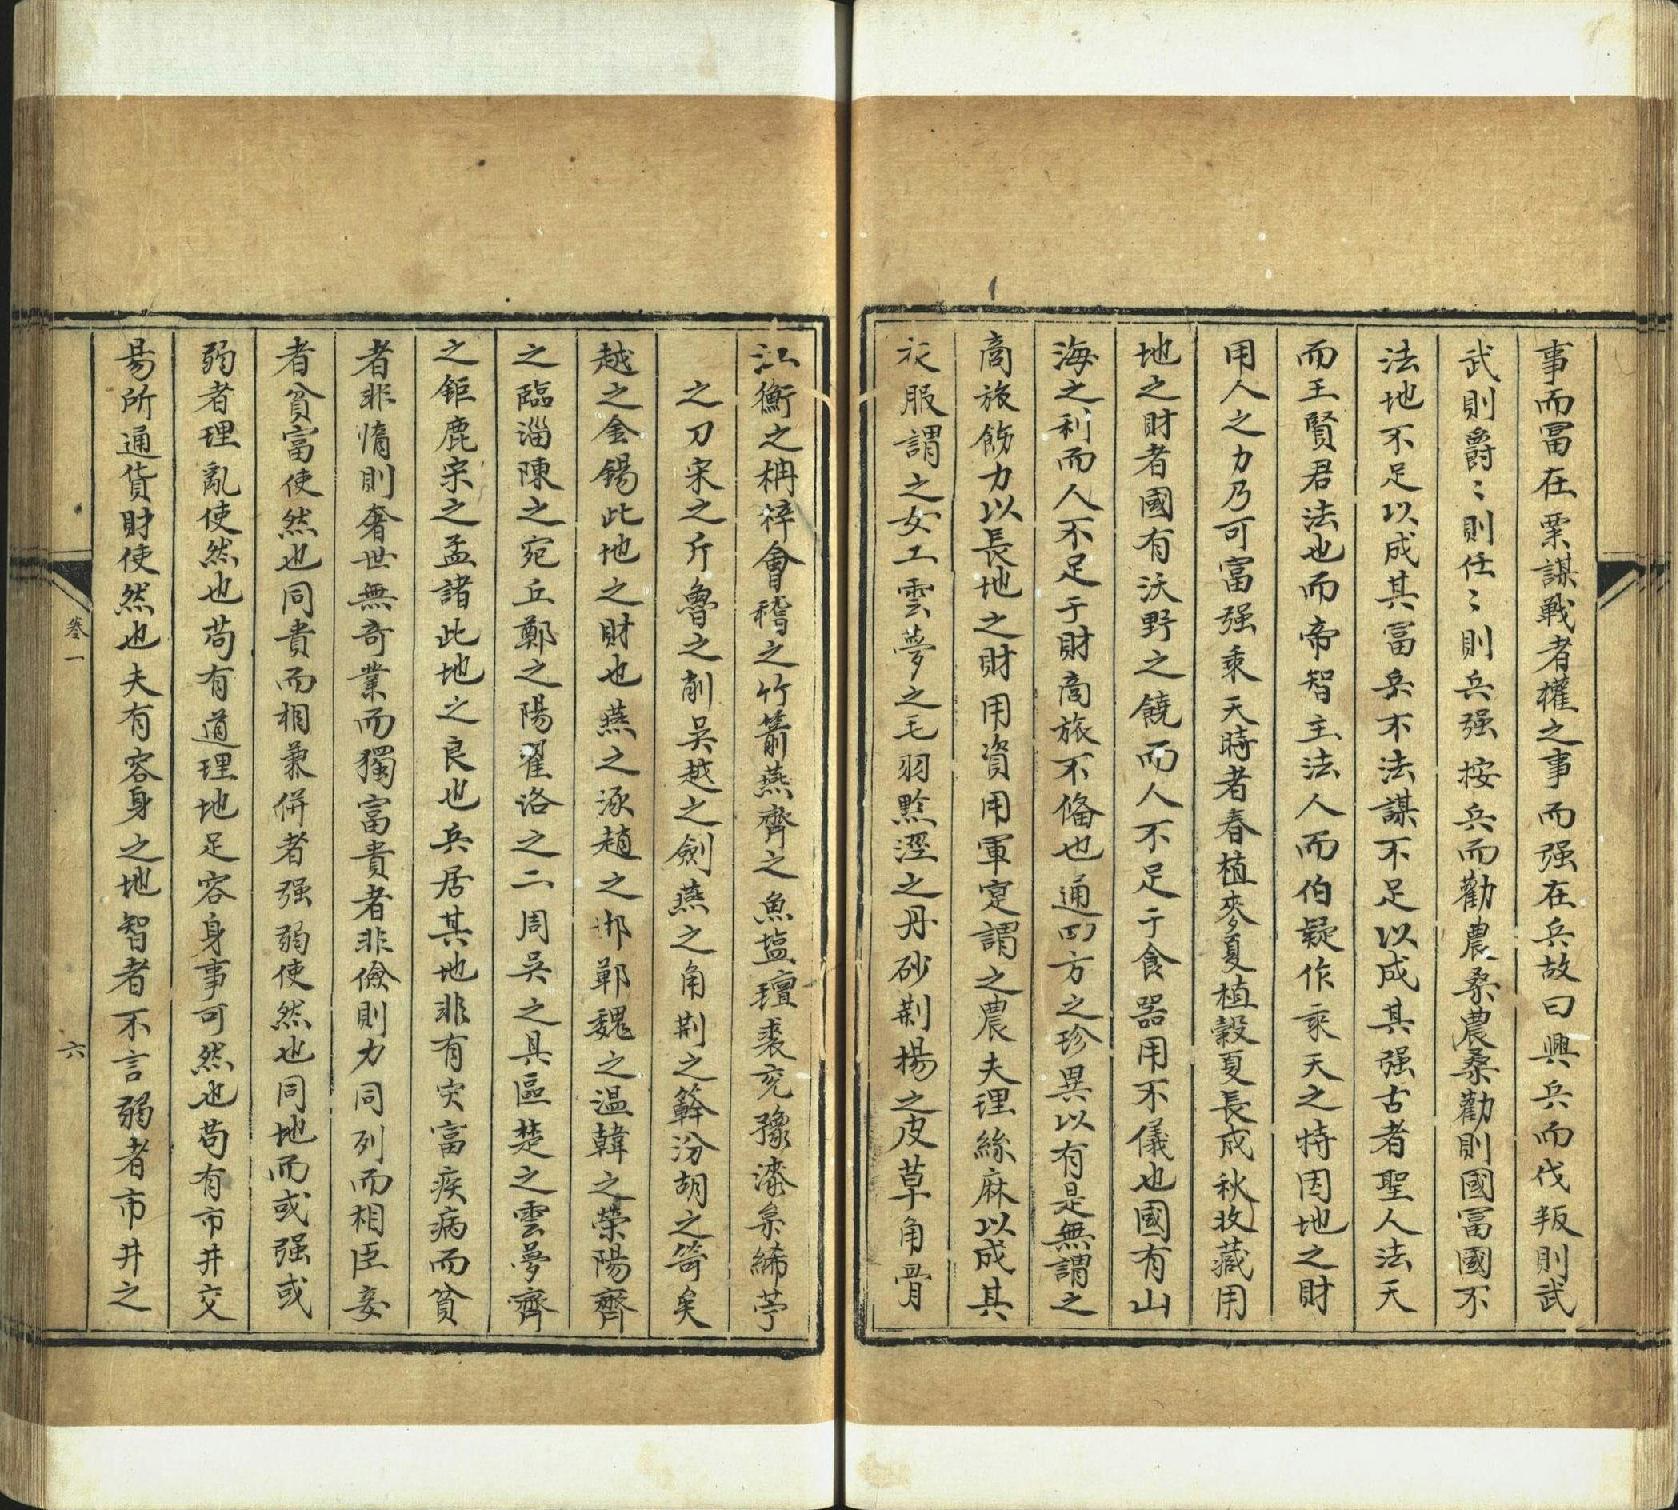 事而冨在粟謀戰者權之事而强在兵故曰興兵而伐叛則武
武則爵〻則任〻則兵强按兵而勸農桑農桑勸則國冨國不
法地不足以成其冨兵不法謀不足以成其强古者聖人法天
而王賢君法也而帝智主法人而伯疑作乘天之時因地之財
用人之力乃可富强乘天時者春植麥夏植穀夏長成秋收藏用
地之財者國有沃野之饒而人不足于食器用不儀也國有山
海之利而人不足于財商旅不偹也通四方之珍異以有是無謂之
商旅飭力以長地之財用資用軍寔謂之農夫理絲麻以成其
衣服謂之女工雲夢之毛羽黔涇之丹砂荆楊之皮草角骨
江衡之柟梓會稽之竹箭燕齊之魚塩氊裘兖豫漆枲絺苧
之刀宋之斤魯之削吳越之劍燕之角荆之簳汾胡之笴矣
越之金錫此地之財也燕之涿趙之邯鄲魏之温韓之荣陽齊
之臨淄陳之宛丘鄭之陽濯洛之二周吳之具區楚之雲夢齊
之鉅鹿宋之孟諸此地之良也兵居其地非有灾富疾病而貧
者非惰則奢世無竒業而獨富貴者非儉則力同列而相臣妾
者貧富使然也同貴而相兼併者强弱使然也同地而或强或
弱者理亂使然也苟有道理地足容身事可然也苟有市井交
易所通貨財使然也夫有容身之地智者不言弱者市井之
卷一
六